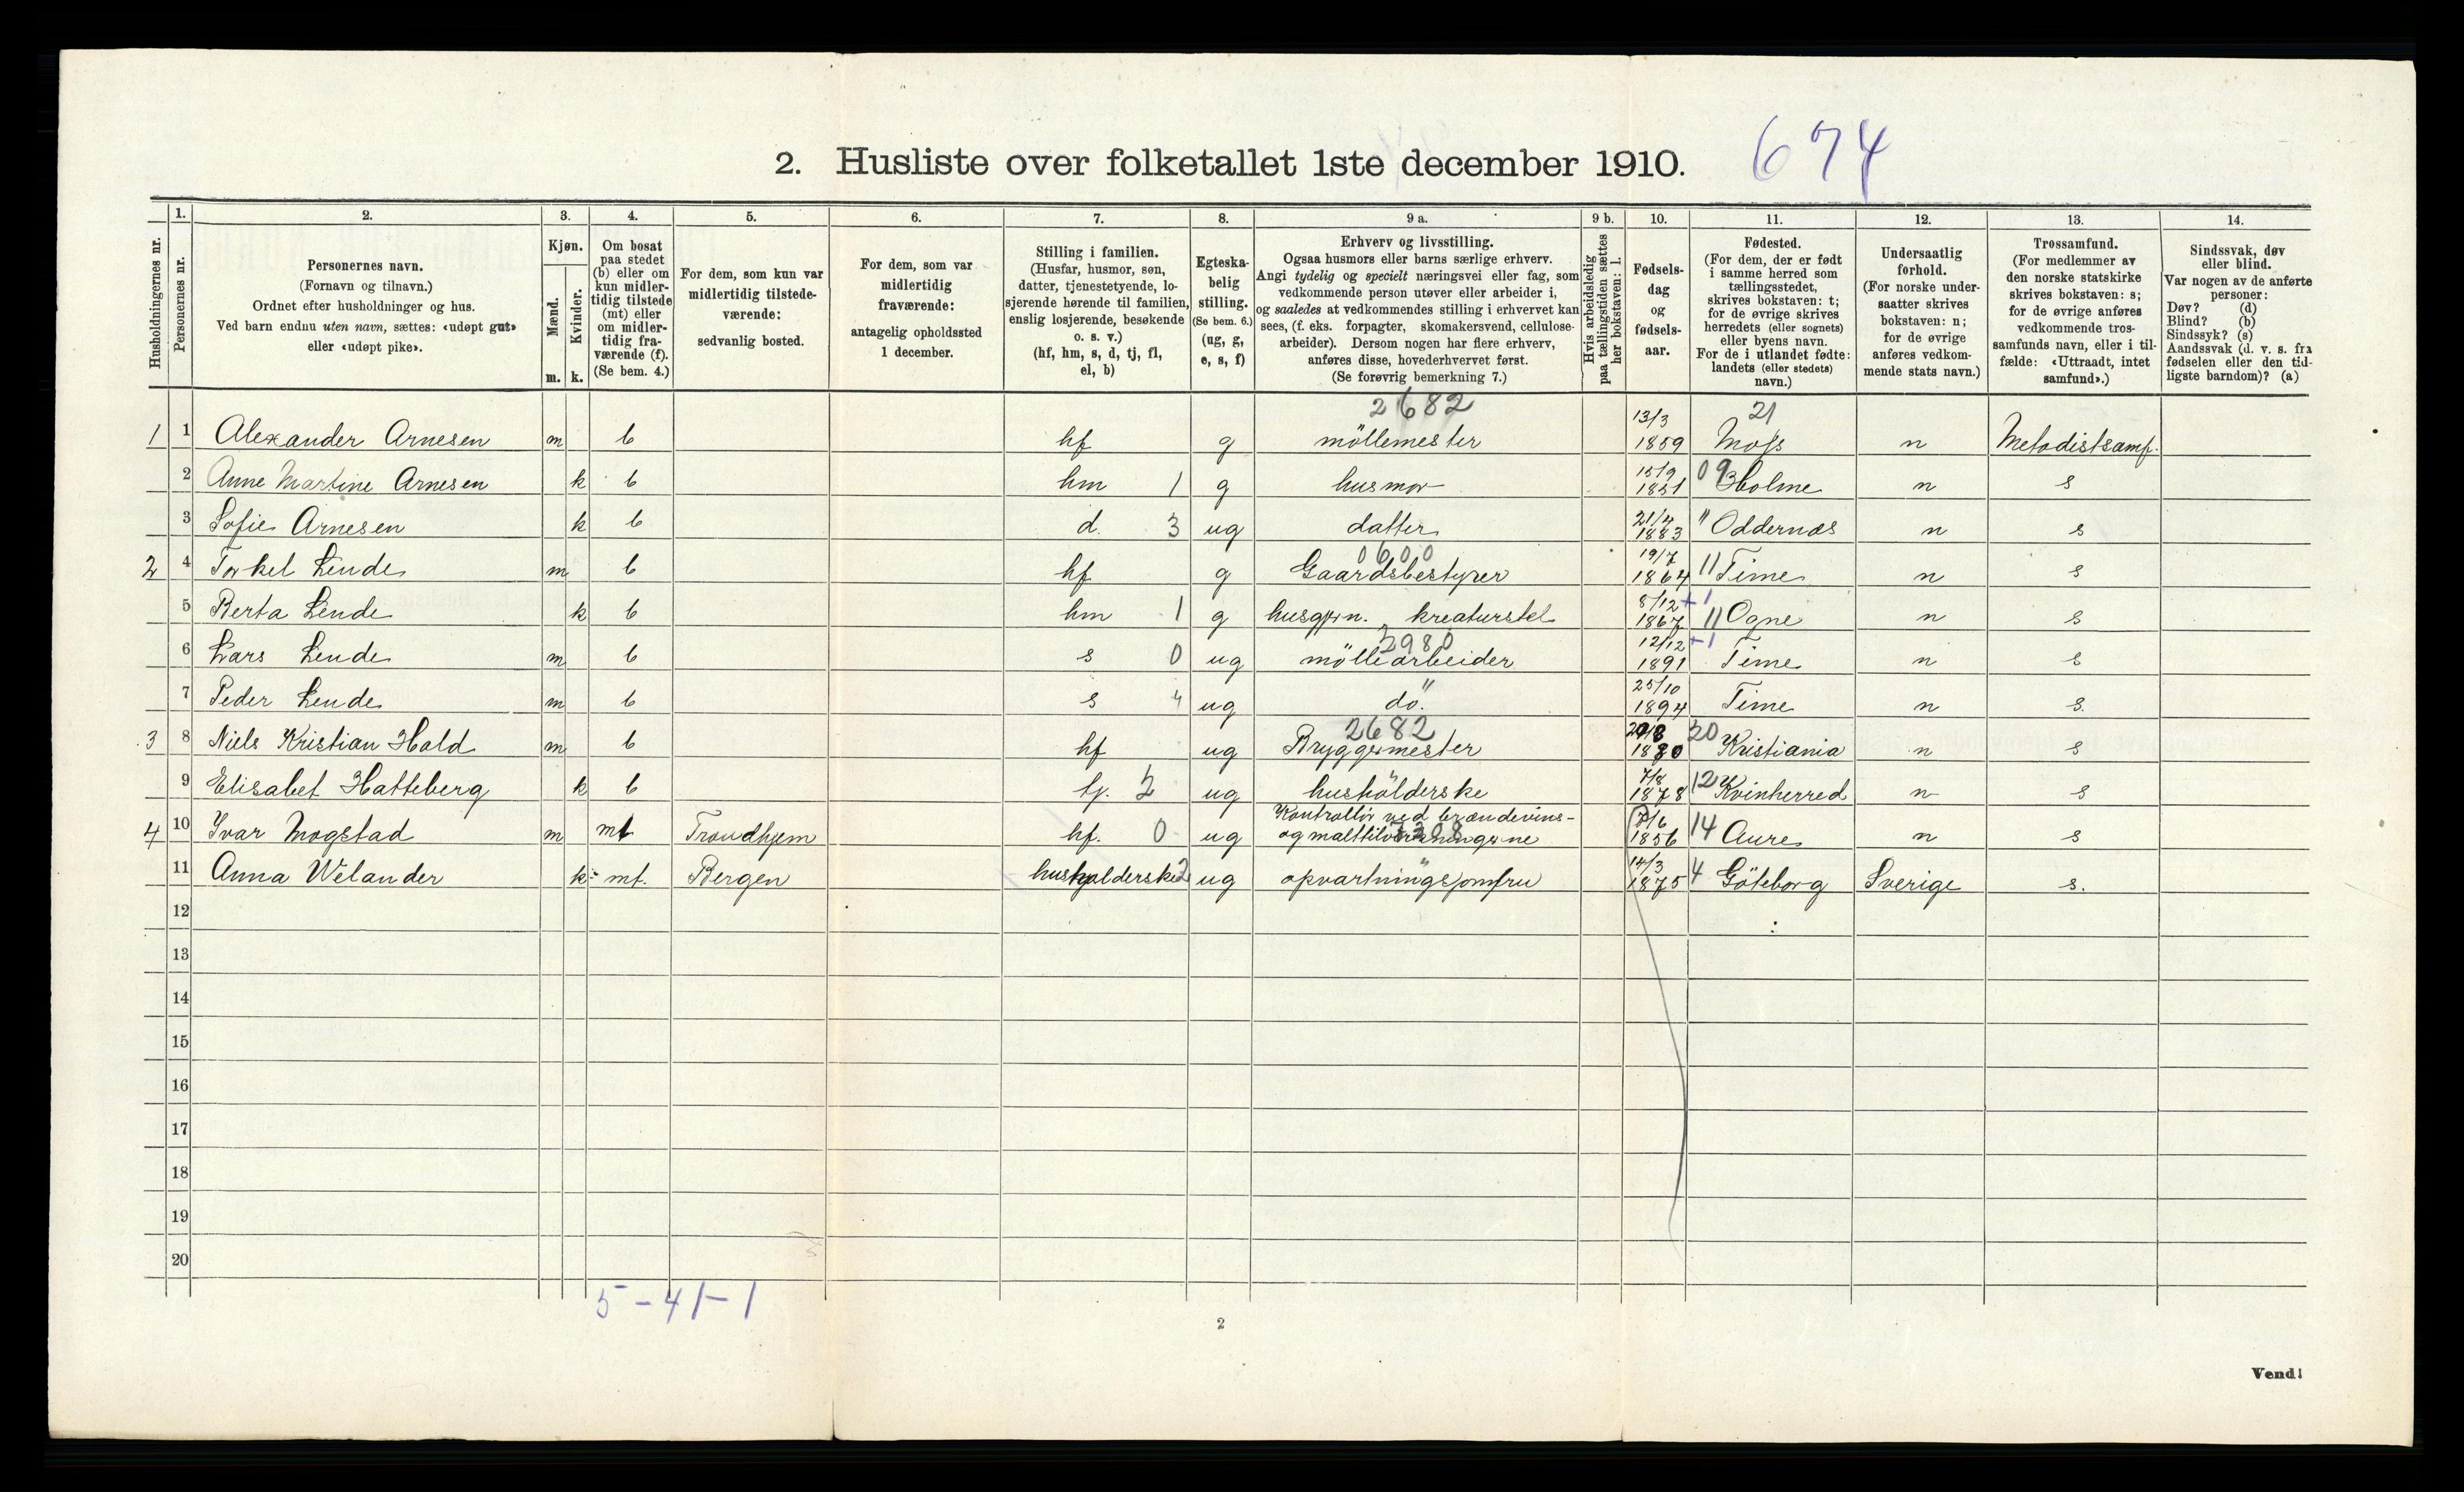 2. Husliste over folketallet 1ste december 1910. 674
Husholdningernes nr.
1.
Personernes nr.
2.
Personernes navn.
(Fornavn og tilnavn.)
Ordnet efter husholdninger og hus.
Ved barn endnu uten navn, sættes: «udøpt gut»
eller «udøpt pike».
3.
Kjøn.
Mænd.
Kvinder.
m. k.
4.
Om bosat
paa stedet
(b) eller om
kun midler-
tidig tilstede
(mt) eller
om midler-
tidig fra-
værende (f).
(Se bem. 4.)
5.
For dem, som kun var
midlertidig tilstede-
værende:
sedvanlig bosted.
6.
For dem, som var
midlertidig
fraværende:
antagelig opholdssted
1 december.
7.
Stilling i familien.
(Husfar, husmor, søn,
datter, tjenestetyende, lo-
sjerende hørende til familien,
enslig losjerende, besøkende
o. s. v.)
(hf, hm, s, d, tj, fl,
el, b)
8.
Egteska-
belig
stilling.
(Se bem. 6.)
(ug, g,
e, s, f)
9 a.
Erhverv og livsstilling.
Ogsaa husmors eller barns særlige erhverv.
Angi tydelig og specielt næringsvei eller fag, som
vedkommende person utøver eller arbeider i,
og saaledes at vedkommendes stilling i erhvervet kan
sees, (f. eks. forpagter, skomakersvend, cellulose-
arbeider). Dersom nogen har flere erhverv,
anføres disse, hovederhvervet først.
(Se forøvrig bemerkning 7.)
9 b.
Hvis arbeidsledig
paa tællingstiden sættes
her bokstaven: l.
10.
Fødsels-
dag
og
fødsels-
aar.
11.
Fødested.
(For dem, der er født
i samme herred som
tællingsstedet,
skrives bokstaven: t;
for de øvrige skrives
herredets (eller sognets)
eller byens navn.
For de i utlandet fødte:
landets (eller stedets)
navn.)
12.
Undersaatlig
forhold.
(For norske under-
saatter skrives
bokstaven: n;
for de øvrige
anføres vedkom-
mende stats navn.)
13.
Trossamfund.
(For medlemmer av
den norske statskirke
skrives bokstaven: s;
for de øvrige anføres
vedkommende tros-
samfunds navn, eller i til-
fælde: «Uttraadt, intet
samfund».)
14.
Sindssvak, døv
eller blind.
Var nogen av de anførte
personer:
Døv? (d)
Blind? (b)
Sindssyk? (s)
Aandssvak (d. v. s. fra
fødselen eller den tid-
ligste barndom)? (a)
2682 13/3 21
1 1 Alexander Arnesen m b hf g möllemester 1859 Moss n Metodistsamf.
2 Anne Martine Arnesen k b hm 1 g husmor 15/9 1851 09 Holme n s
3 Sofie Arnesen k b d. 3 ug datter 21/4 1883 " Oddernæs n s
0600
2 4 Torkel Lende m b hf g Gaardsbestyrer 19/7 1864 11 Time n s
5 Berta Lende k b hm 1 g husgjern. kreaturstel 8/12 +1 1867 11 Ogne n s
3980
6 Lars Lende m b s 0 ug möllearbeider 12/12 +1 1891 Time n s
7 Peder Lende m b s 4 ug do." 25/10 1894 Time n s.
2682
3 8 Niels Kristian Hald m b hf ug Bryggermester 1880 20 Kristiania n s
9 Elisabet Hatteberg k b tj. 2 ug husholderske 7/8 1878 12 Kvinherred n s
4 10 Ivar Mogstad m mt Trondhjem hf. 0 ug Kontrollör ved brændevins- og malttilvirkningerne 7/6 1856 14 Aure n s
11 Anna Welander k mt. Bergen husholderske 2 ug opvartningsjomfru 14/3 1875 4 Göteborg Sverige s.
12
13
14
15
16
17
18
19
20
5-41-1
2
Vend!